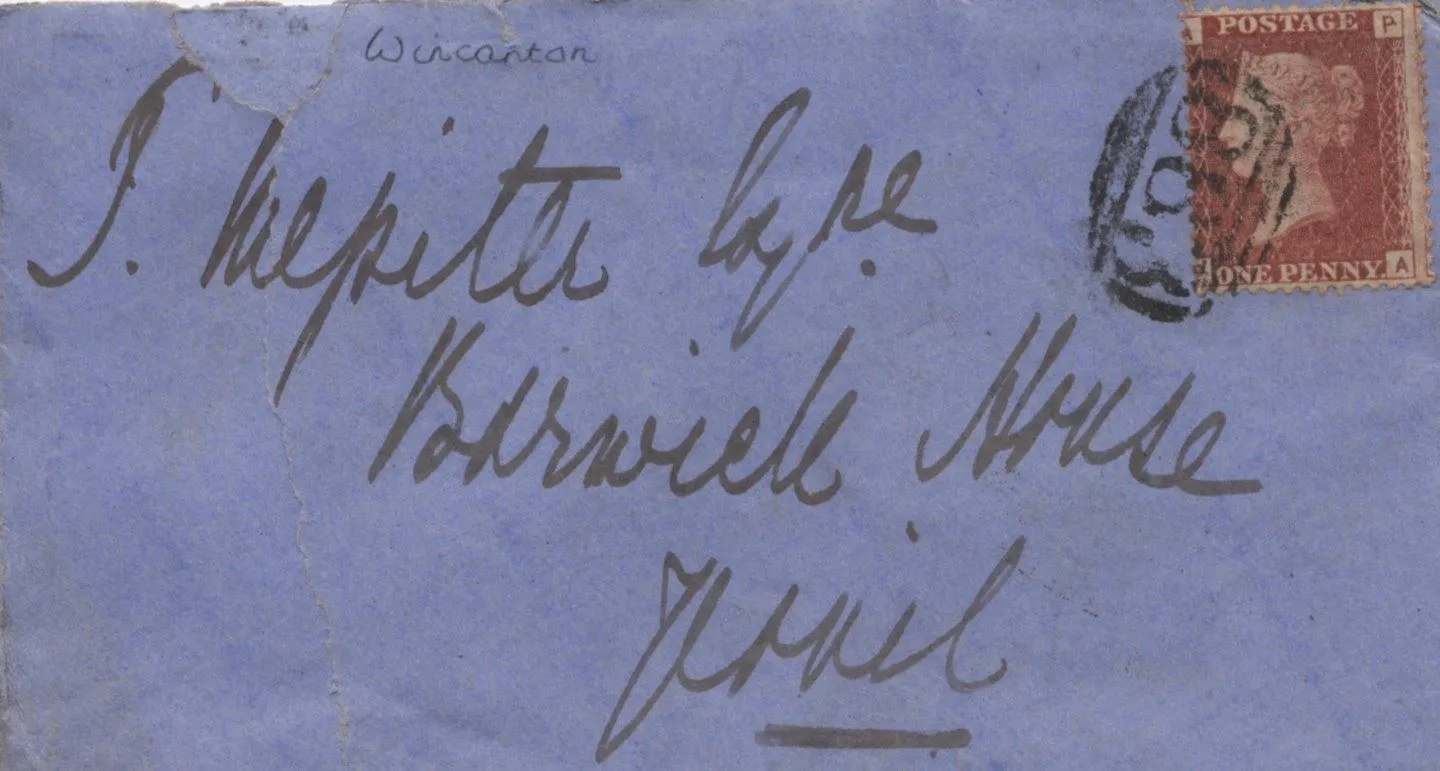 Wincanton
POSTAGE
A P
Messiter Esqre
ONE PENNY A
Barwick House
Yeovil